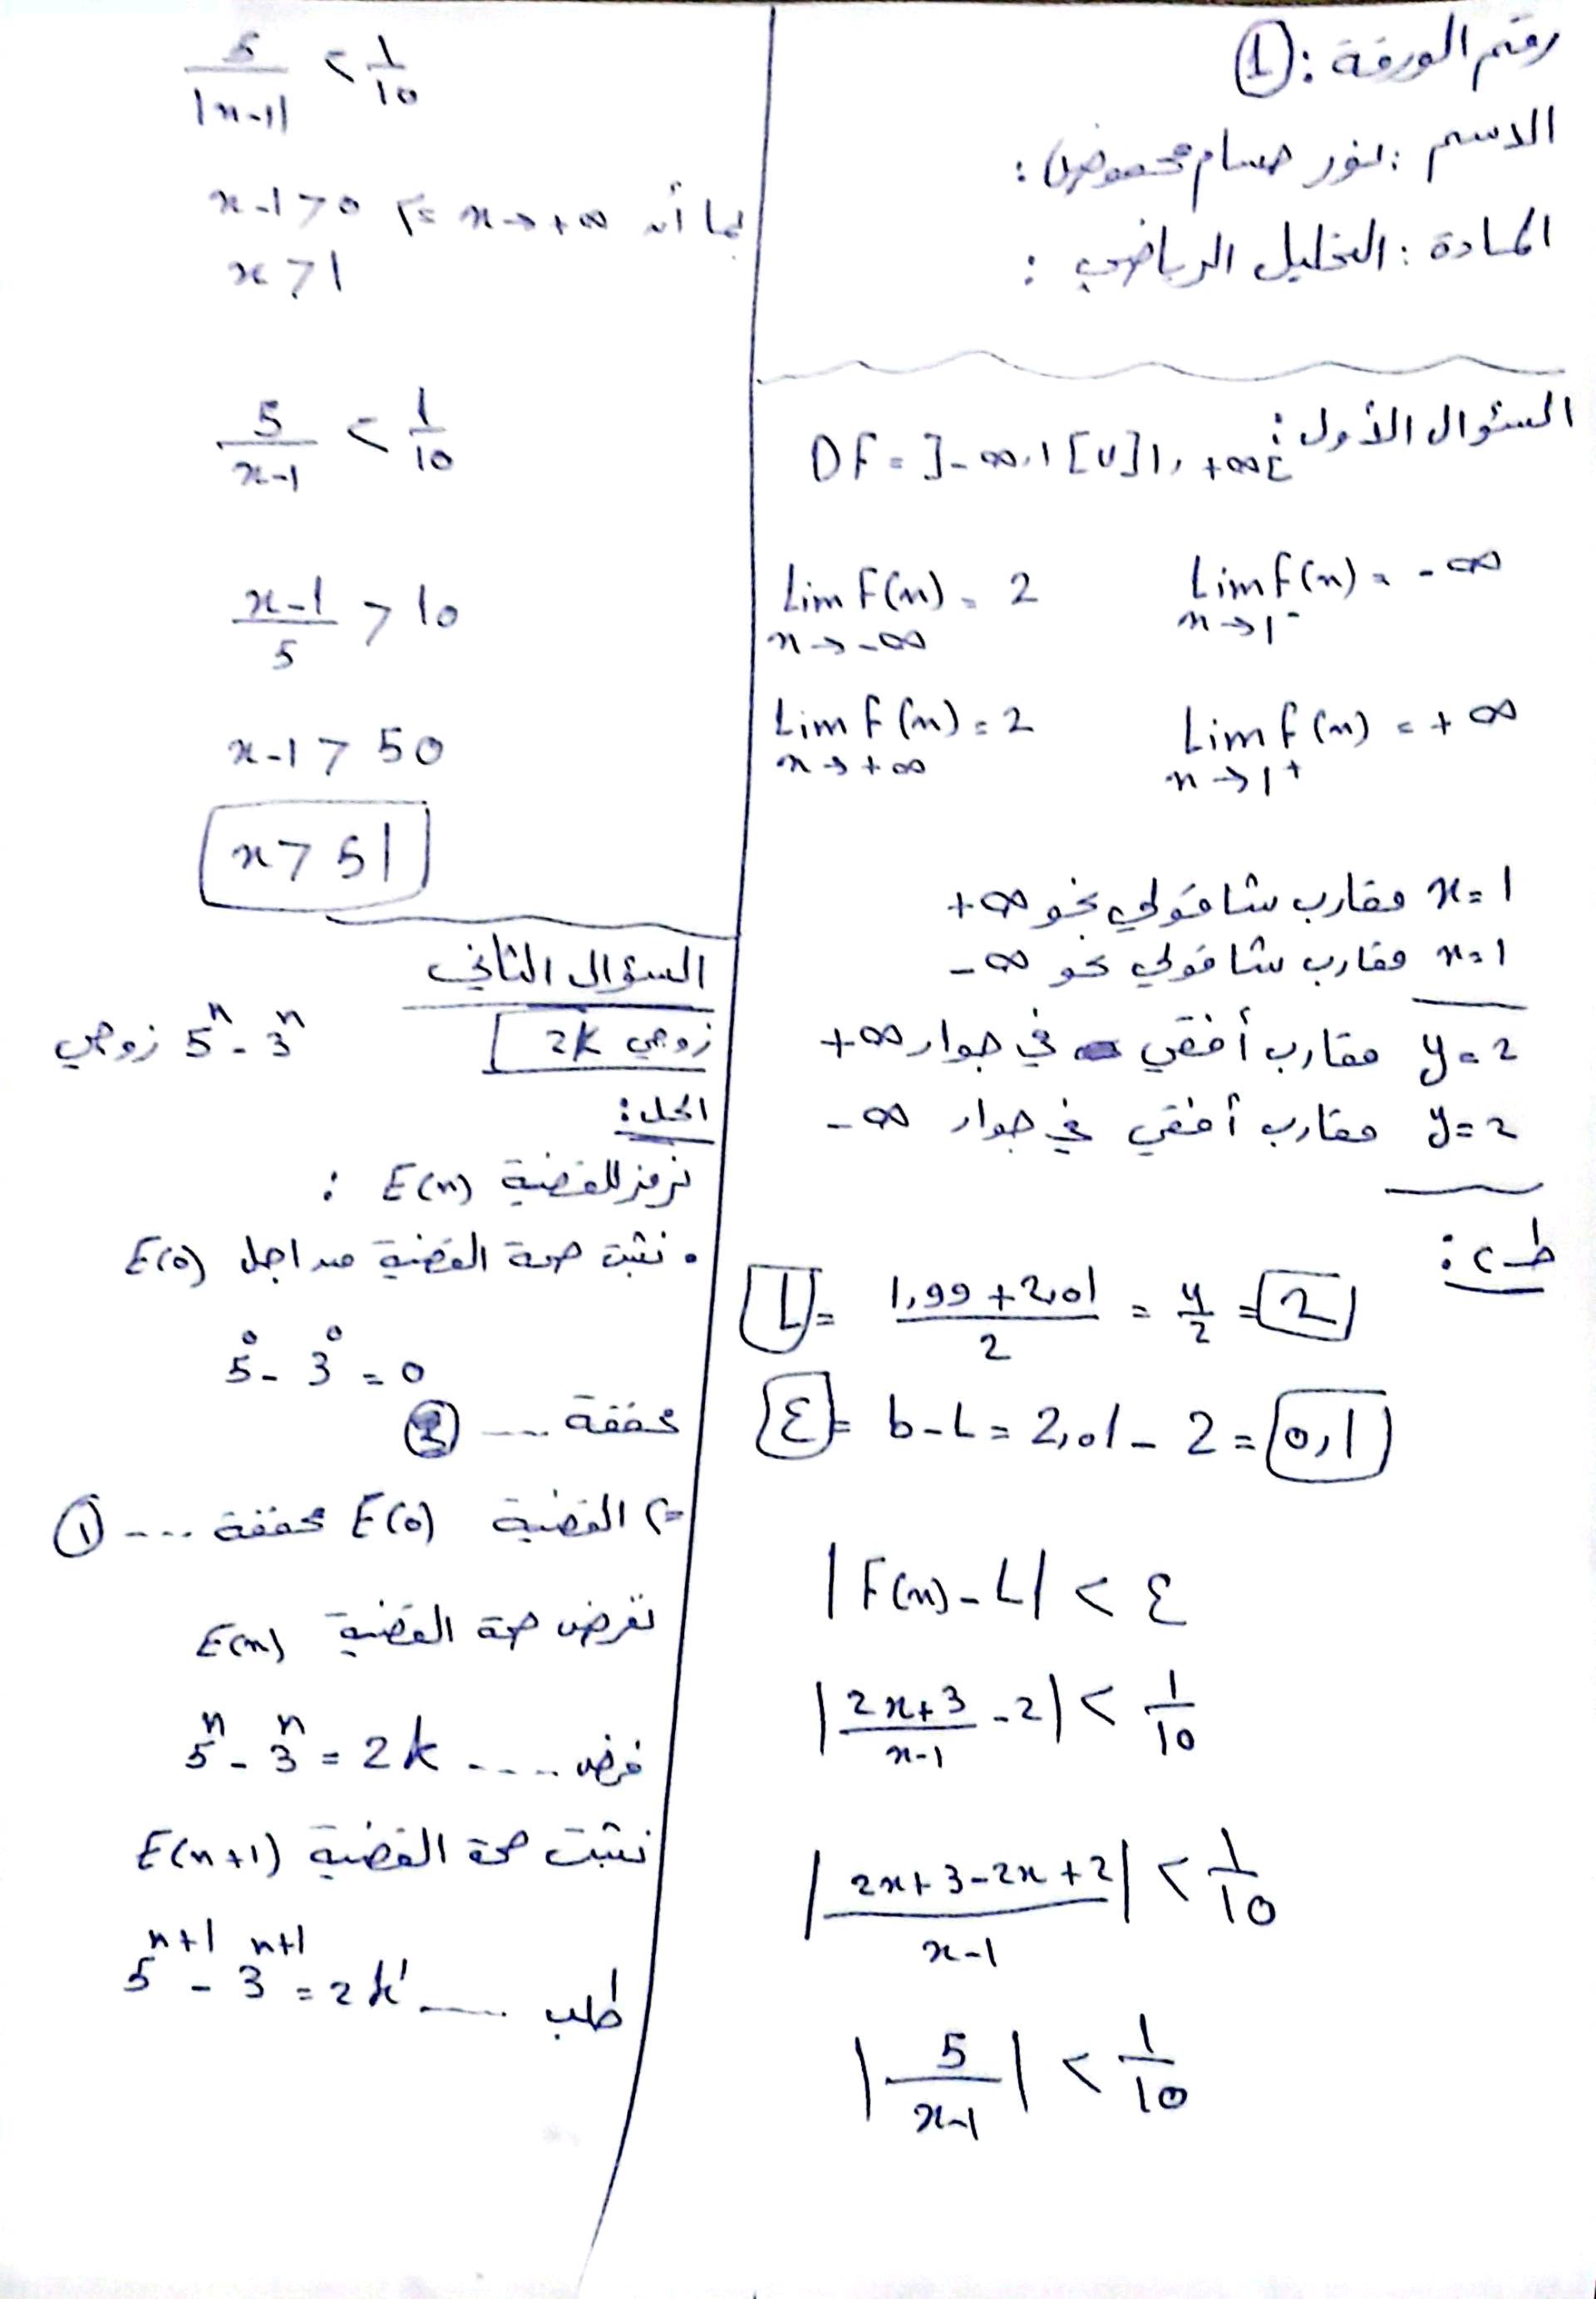 رقم الورقة: 1
الاسم: نور حسام
المادة: التحليل الرياضي:
السؤال الأول:
DF = ]-∞,1[∪]1,+∞[
Lim F(x) = 2    Lim f(x) = -∞
x→-∞    x→1⁻
Lim f(x) = 2    Lim f(x) = +∞
x→+∞    x→1⁺
x=1 مقارب شاقولي نحو +∞
x=1 مقارب شاقولي نحو -∞
y=2 مقارب أفقي في جوار +∞
y=2 مقارب أفقي في جوار -∞
ط2:
L = (1,99 + 2,01)/2 = 4/2 = 2
ε = b-L = 2,01 - 2 = 0,1
|F(x)-L| < ε
|(2x+3)/(x-1) - 2| < 1/10
|(2x+3-2x+2)/(x-1)| < 1/10
|5/(x-1)| < 1/10
5/|x-1| < 1/10
بما أن x→+∞ ⇐ x-1>0
x>1
5/(x-1) < 1/10
(x-1)/5 > 10
x-1 > 50
x > 51
السؤال الثاني
زوجي 2k    5ⁿ - 3ⁿ زوجي
الحل:
نرمز للقضية E(n) :
• نثبت صحة القضية من اجل E(0)
5⁰ - 3⁰ = 0
محققة ....
⇐ القضية E(0) محققة ... 1
نفرض صحة القضية E(n)
5ⁿ - 3ⁿ = 2k .... فرض
نثبت صحة القضية E(n+1)
5ⁿ⁺¹ - 3ⁿ⁺¹ = 2k' .... طلب